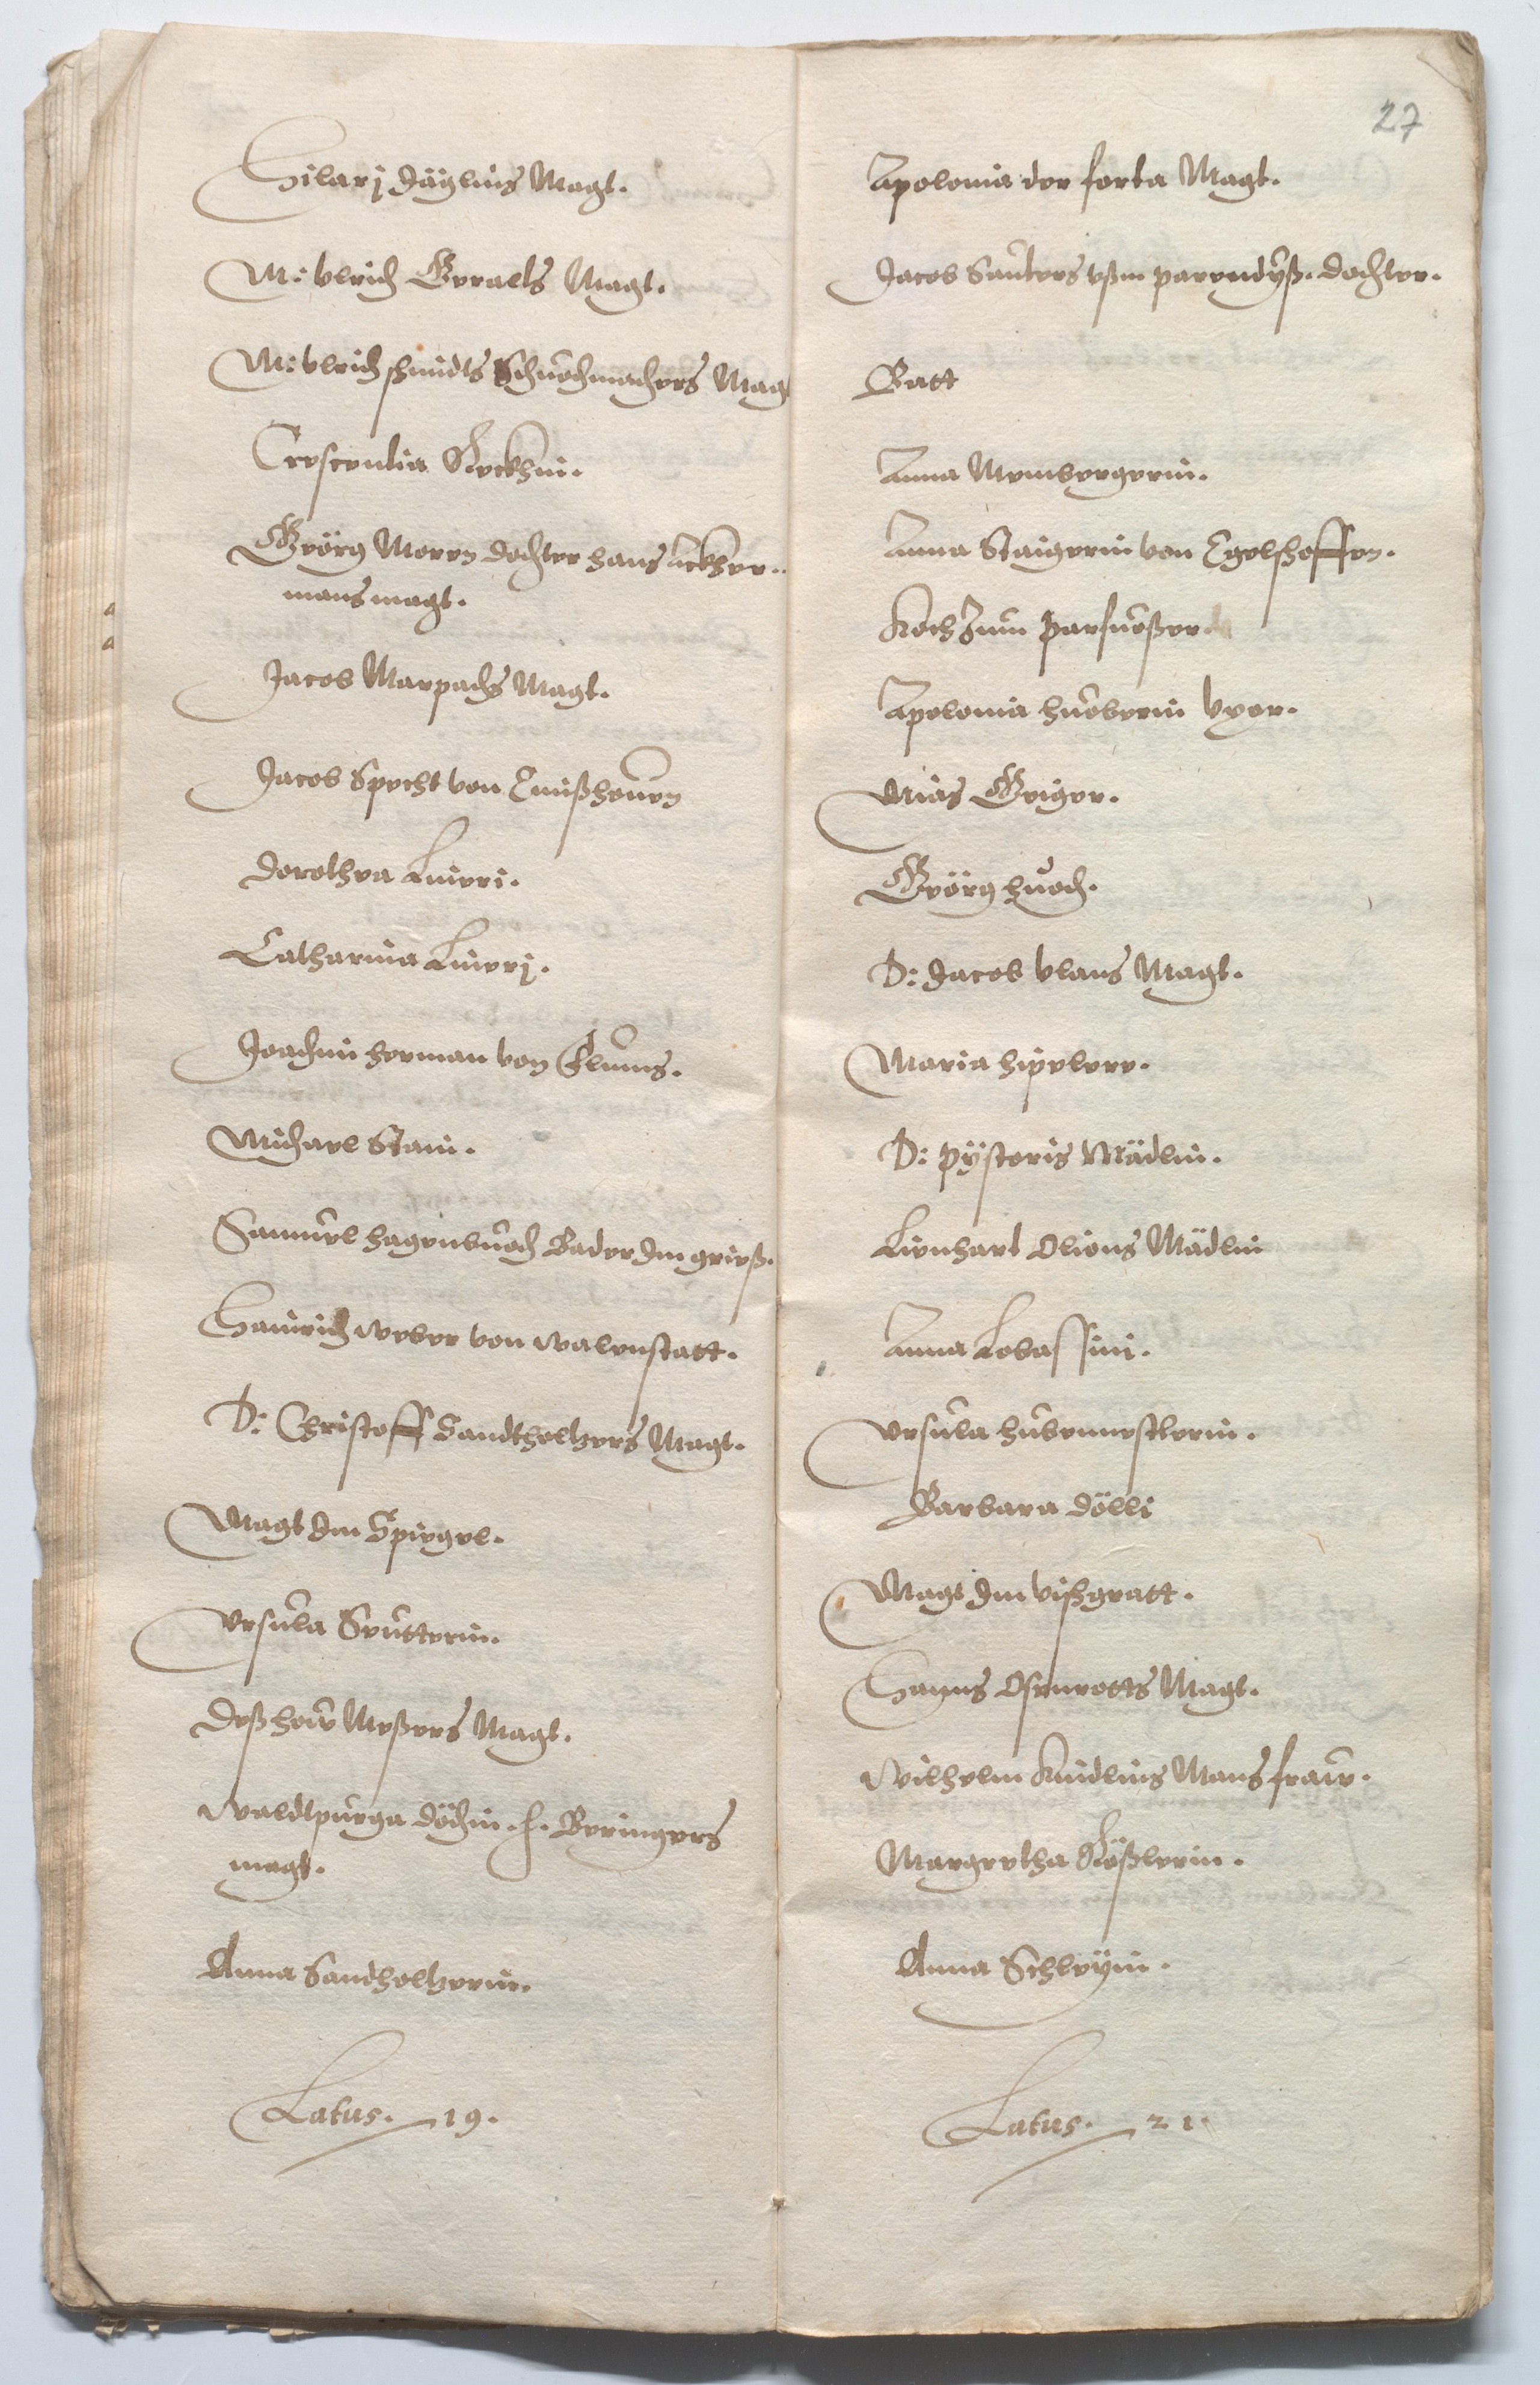 Hilarj Jäglins Magt.
M: Vlrich Gerachs Magt.
M: Vlrich schmidts Schuochmachers Mag
Crescentia Keckhin.
Geörg Moren dochter hans Ackher-
mans magt.
Jacob Marpachs Magt.
Jacob Specht von Emißhouen
Dorothea Lineri.
Catharina Linerj.
Joachim herman von Flums.
Michael Stain.
Samuel hagenbuoch Bader Im grieß.
Hainrich weber von walenstatt.
D: Christoff Sandtholtzers Magt.
Magt Im Spiegel.
Vrsula Seutterin.
Deßhouw Meßers Magt.
Waldtpurga döchin. H. Beringers
magt.
Anna Sandtholtzerin.
Latus. 19.
27
Apolonia der forta Magt.
Jacob Sauters vßm paredyß. dochter.
Batt
Anna Membergerin.
Anna Staigerin von Egelshoffen.
Koch Zum parfuoßer
Apolonia huoberin vxor.
Mias Geiger.
Geörg huoch.
D: Jacob Vlans Magt.
Maria hipelere.
D: pÿstoris Mädlin.
Lienhart Olions Mädlin
Anna Lobassini.
Vrsula hubennestlerin.
Barbara dölli
Magt Im vischgratt.
Hanns Osenrotts Magt.
Wilhelm Kindlins Mans fraw.
Margretha Rößlerin.
Anna Schleÿin.
Latus. 21.